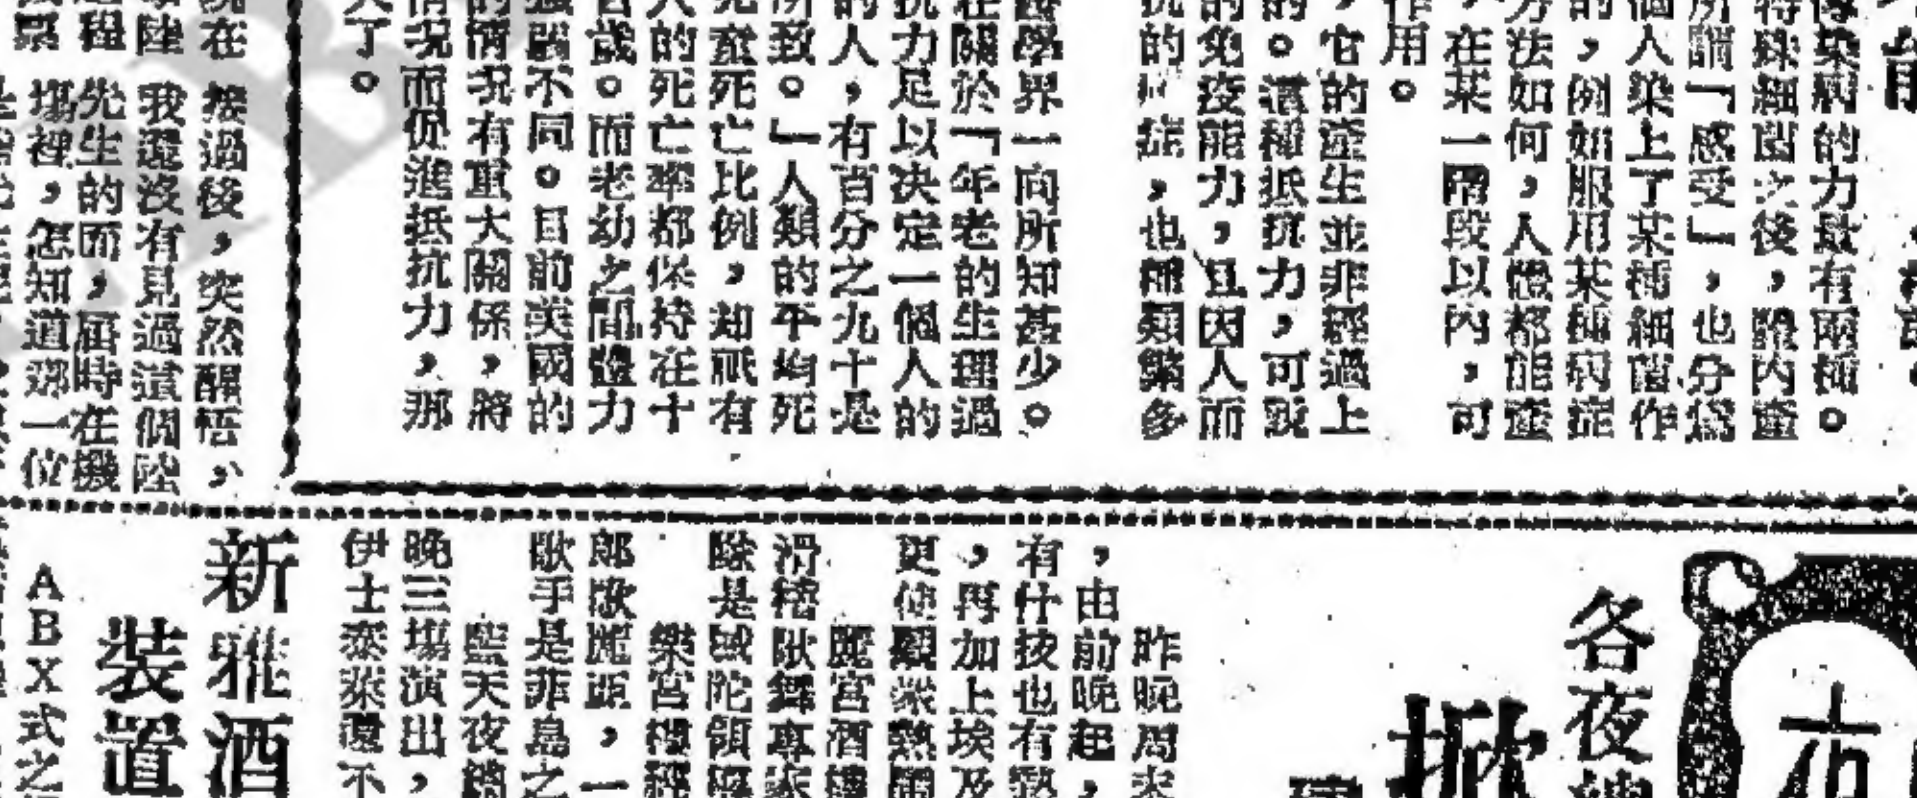 傳染病的力量有兩種。
特殊細菌之後，體內產
所謂「感受」，也分為
個人染上了某種細菌作
的，例如服用某種病症
方法如何，人體都能產
，在某一階段以內，可
作用。
，它的產生並非經過上
的。這種抵抗力，可說
的免疫能力，且因人而
抗的病症，也種類繁多
醫學界一向所知甚少。
在關於「年老的生理過
抗力足以決定一個人的
的人，有百分之九十是
所致。」人類的平均死
死亡比例，却祇有
人的死亡率都保持在十
百歲。而老幼之間體力
強弱不同。目前美國的
的情況有重大關係，將
情況而促進抵抗力，那
大了。
現在接過後，突然醒悟，
陸我還沒有見過這個陸
過程先生的面，屆時在機
場裡，怎知道那一位
各夜總
掀
昨晚周末
，由前晚起，
有什技也有
，再加上埃及
更使顧眾熱鬧
麗宮酒樓
滑稽歌舞專家
除是域陀領
樂宮樓
郎歌麗亞，一
歌手是菲島之
藍天夜總
晚三場演出，
伊士泰萊還不
新雅酒
裝置
ABX式之